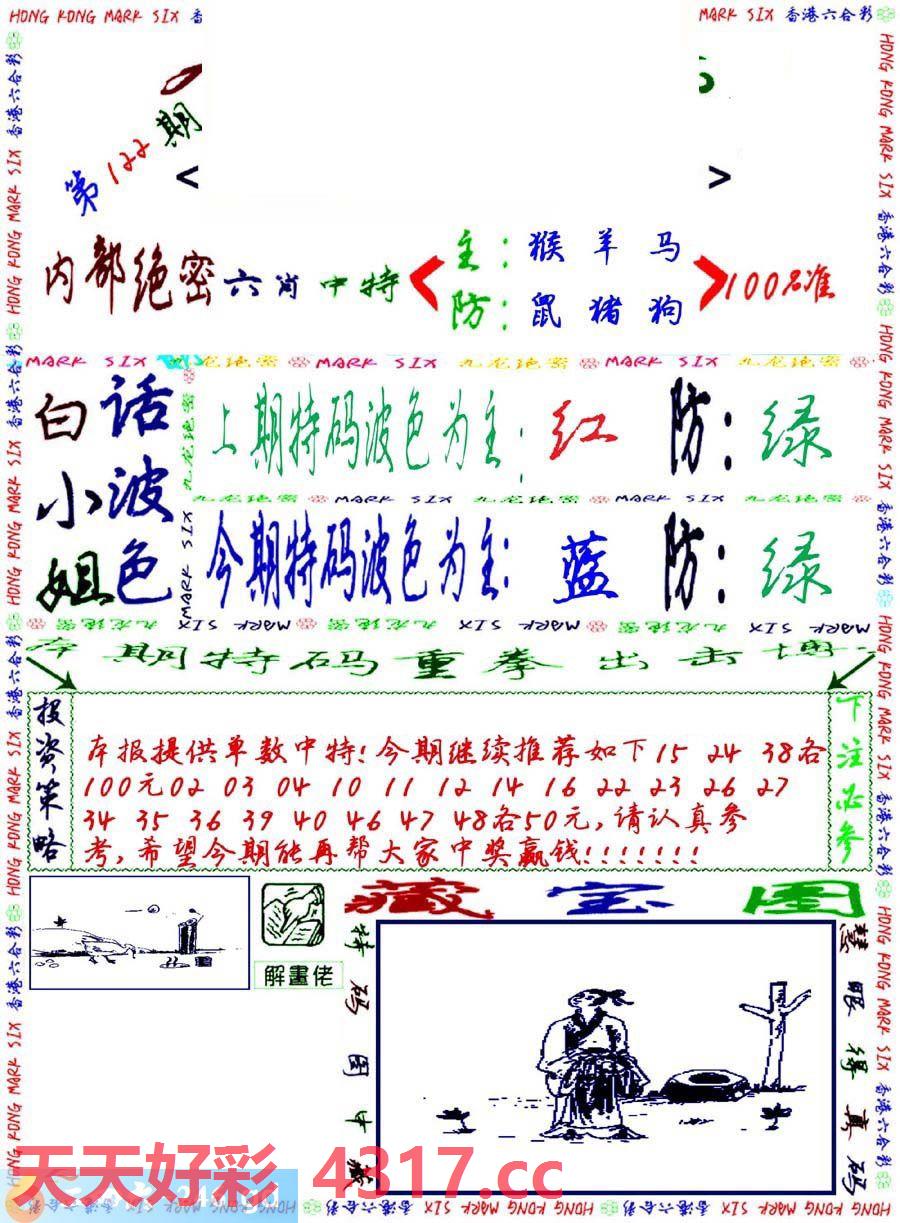 HONG KONG MARK SIX 香
MARK SIX 香港六合彩
第122期
< >
内部绝密六肖中特
主：猴 羊 马
防：鼠 猪 狗
100%准
MARK SIX 九龙绝密 MARK SIX 九龙绝密 MARK SIX 九龙绝密
白话
小波
姐色
上期特码波色为主：红 防：绿
九龙绝密 MARK SIX 九龙绝密 MARK SIX 九龙绝密
今期特码波色为主：蓝 防：绿
MARK SIX 九龙绝密 MARK SIX 九龙绝密 MARK SIX
本期特码重拳出击博
投资策略
本报提供单数中特！今期继续推荐如下15 24 38各
100元02 03 04 10 11 12 14 16 22 23 26 27
34 35 36 39 40 46 47 48各50元，请认真参
考，希望今期能再帮大家中奖赢钱！！！！！！！
下注必参
解畫佬
藏宝图
特码图中藏
慧眼得真码
天天好彩 4317.cc
HONG KONG MARK SIX 香港六合彩